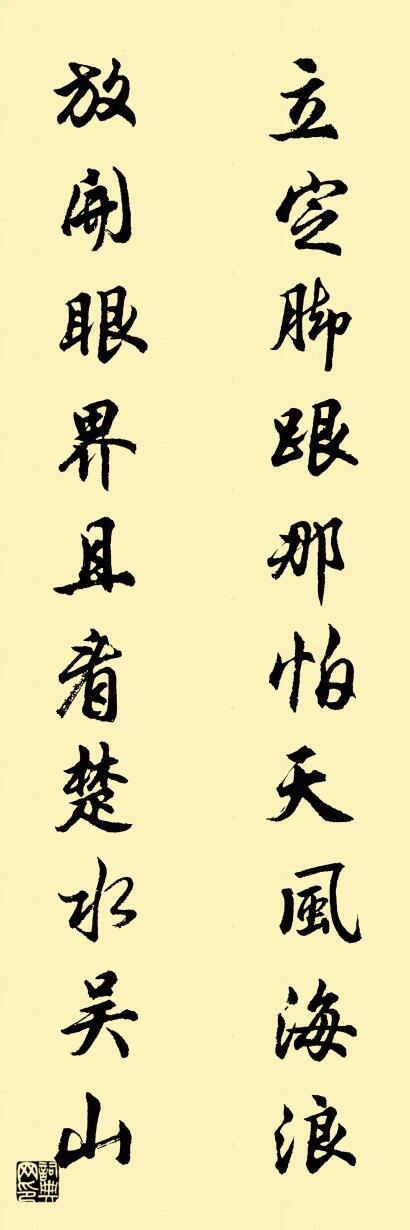 立定脚跟那怕天風海浪
放開眼界且看楚水吴山
詞典網印